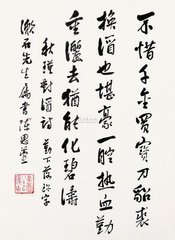 不惜千金買寶刀貂裘
換酒也堪豪一腔熱血勤
珍重灑去猶能化碧濤
秋瑾對酒詩
漱石先生屬書